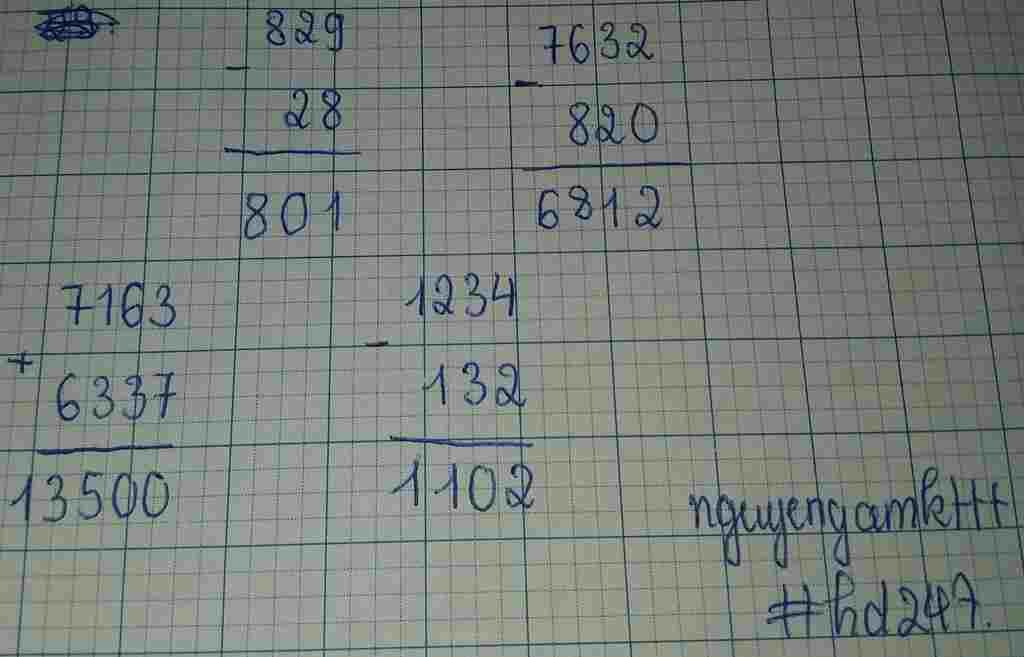 829
-
28
801
7632
-
820
6812
7163
+
6337
13500
1234
-
132
1102
nguyengamktt
#hd247.